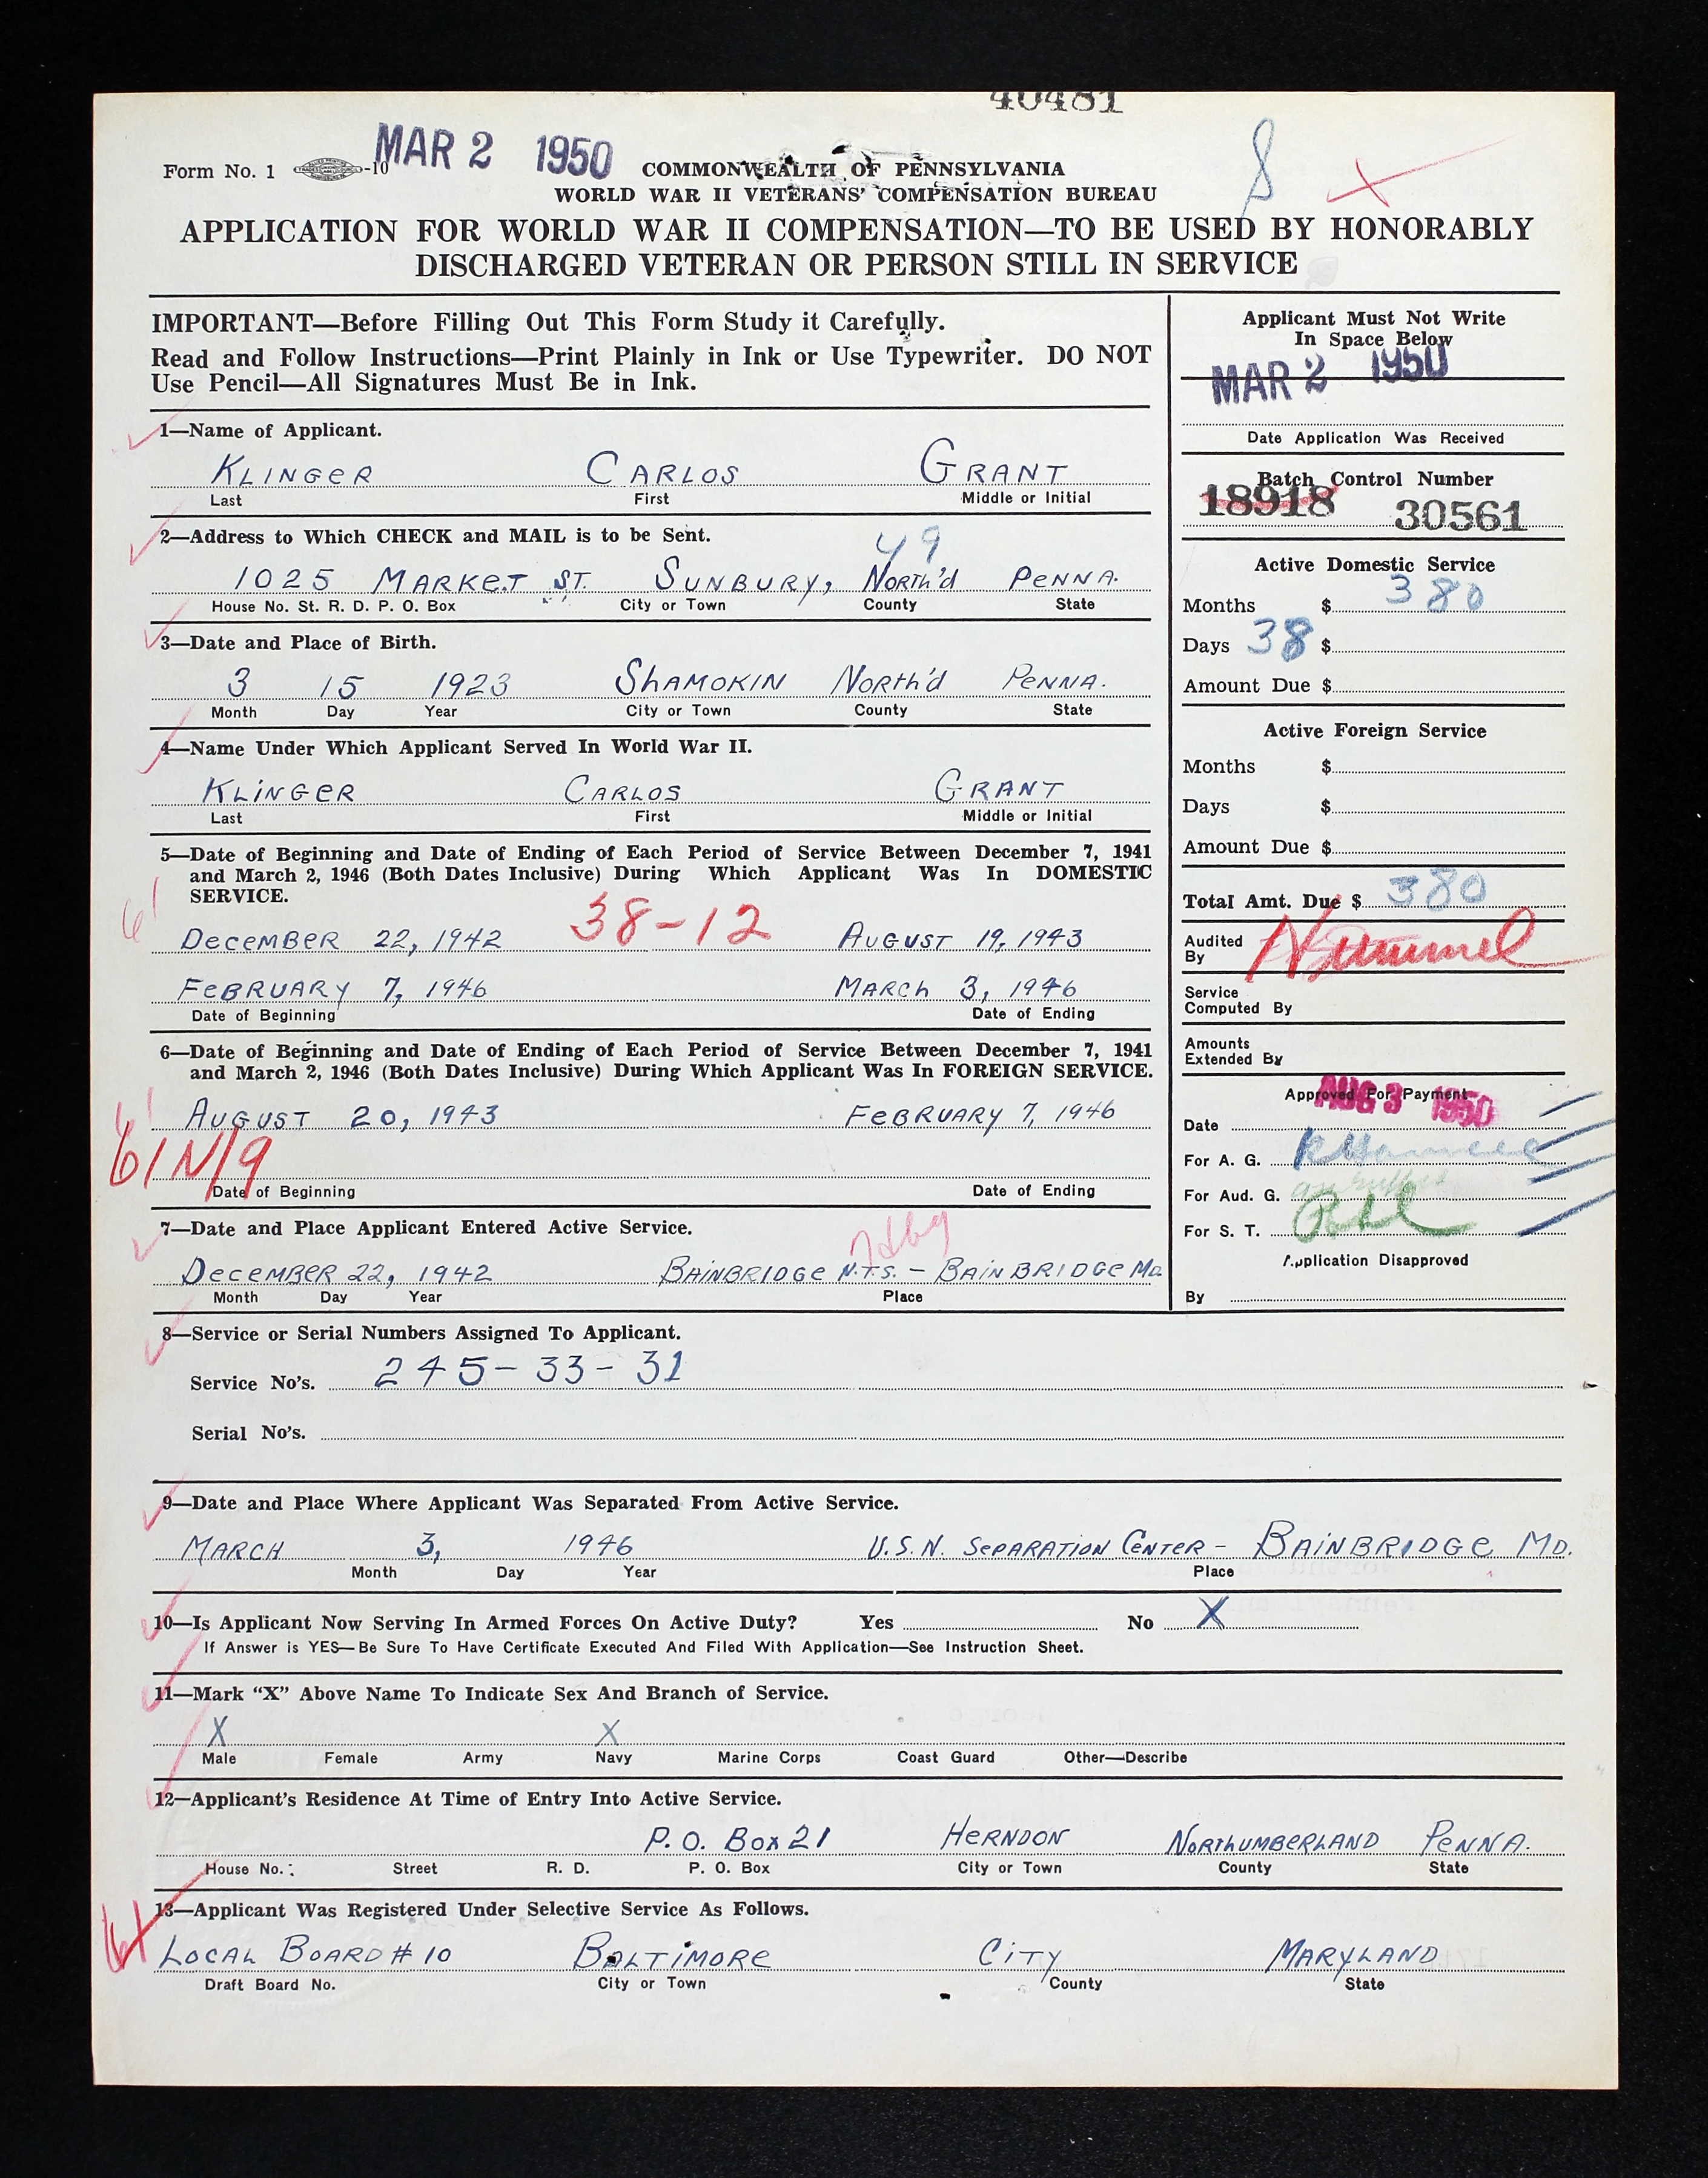 40481
MAR 2 1950
Form No. 1 -10
COMMONWEALTH OF PENNSYLVANIA
WORLD WAR II VETERANS' COMPENSATION BUREAU
8
APPLICATION FOR WORLD WAR II COMPENSATION—TO BE USED BY HONORABLY
DISCHARGED VETERAN OR PERSON STILL IN SERVICE
IMPORTANT—Before Filling Out This Form Study it Carefully.
Read and Follow Instructions—Print Plainly in Ink or Use Typewriter. DO NOT
Use Pencil—All Signatures Must Be in Ink.
1—Name of Applicant.
KLINGER CARLOS GRANT
Last First Middle or Initial
2—Address to Which CHECK and MAIL is to be Sent.
49
1025 MARKET ST. SUNBURY, NORTH'd PENNA.
House No. St. R. D. P. O. Box City or Town County State
3—Date and Place of Birth.
3 15 1923 SHAMOKIN NORTH'd PENNA.
Month Day Year City or Town County State
4—Name Under Which Applicant Served In World War II.
KLINGER CARLOS GRANT
Last First Middle or Initial
5—Date of Beginning and Date of Ending of Each Period of Service Between December 7, 1941
and March 2, 1946 (Both Dates Inclusive) During Which Applicant Was In DOMESTIC
SERVICE.
61
38-12
DECEMBER 22, 1942 AUGUST 19, 1943
FEBRUARY 7, 1946 MARCH 3, 1946
Date of Beginning Date of Ending
6—Date of Beginning and Date of Ending of Each Period of Service Between December 7, 1941
and March 2, 1946 (Both Dates Inclusive) During Which Applicant Was In FOREIGN SERVICE.
61
AUGUST 20, 1943 FEBRUARY 7, 1946
61N19
Date of Beginning Date of Ending
7—Date and Place Applicant Entered Active Service.
DECEMBER 22, 1942 BAINBRIDGE N.T.S. - BAINBRIDGE MD.
Month Day Year Place
Applicant Must Not Write
In Space Below
MAR 2 1950
Date Application Was Received
Batch Control Number
18918 30561
Active Domestic Service
Months $ 380
Days 38 $
Amount Due $
Active Foreign Service
Months $
Days $
Amount Due $
Total Amt. Due $ 380
Audited
By
Service
Computed By
Amounts
Extended By
Approved For Payment
AUG 3 1950
Date
For A. G.
For Aud. G.
For S. T.
Application Disapproved
By
8—Service or Serial Numbers Assigned To Applicant.
Service No's. 245-33-31
Serial No's.
9—Date and Place Where Applicant Was Separated From Active Service.
MARCH 3, 1946 U.S.N. SEPARATION CENTER - BAINBRIDGE MD.
Month Day Year Place
10—Is Applicant Now Serving In Armed Forces On Active Duty? Yes No X
If Answer is YES—Be Sure To Have Certificate Executed And Filed With Application—See Instruction Sheet.
11—Mark "X" Above Name To Indicate Sex And Branch of Service.
X X
Male Female Army Navy Marine Corps Coast Guard Other—Describe
12—Applicant's Residence At Time of Entry Into Active Service.
P.O. BOX 21 HERNDON NORTHUMBERLAND PENNA.
House No. Street R. D. P. O. Box City or Town County State
13—Applicant Was Registered Under Selective Service As Follows.
61
LOCAL BOARD # 10 BALTIMORE CITY MARYLAND
Draft Board No. City or Town County State